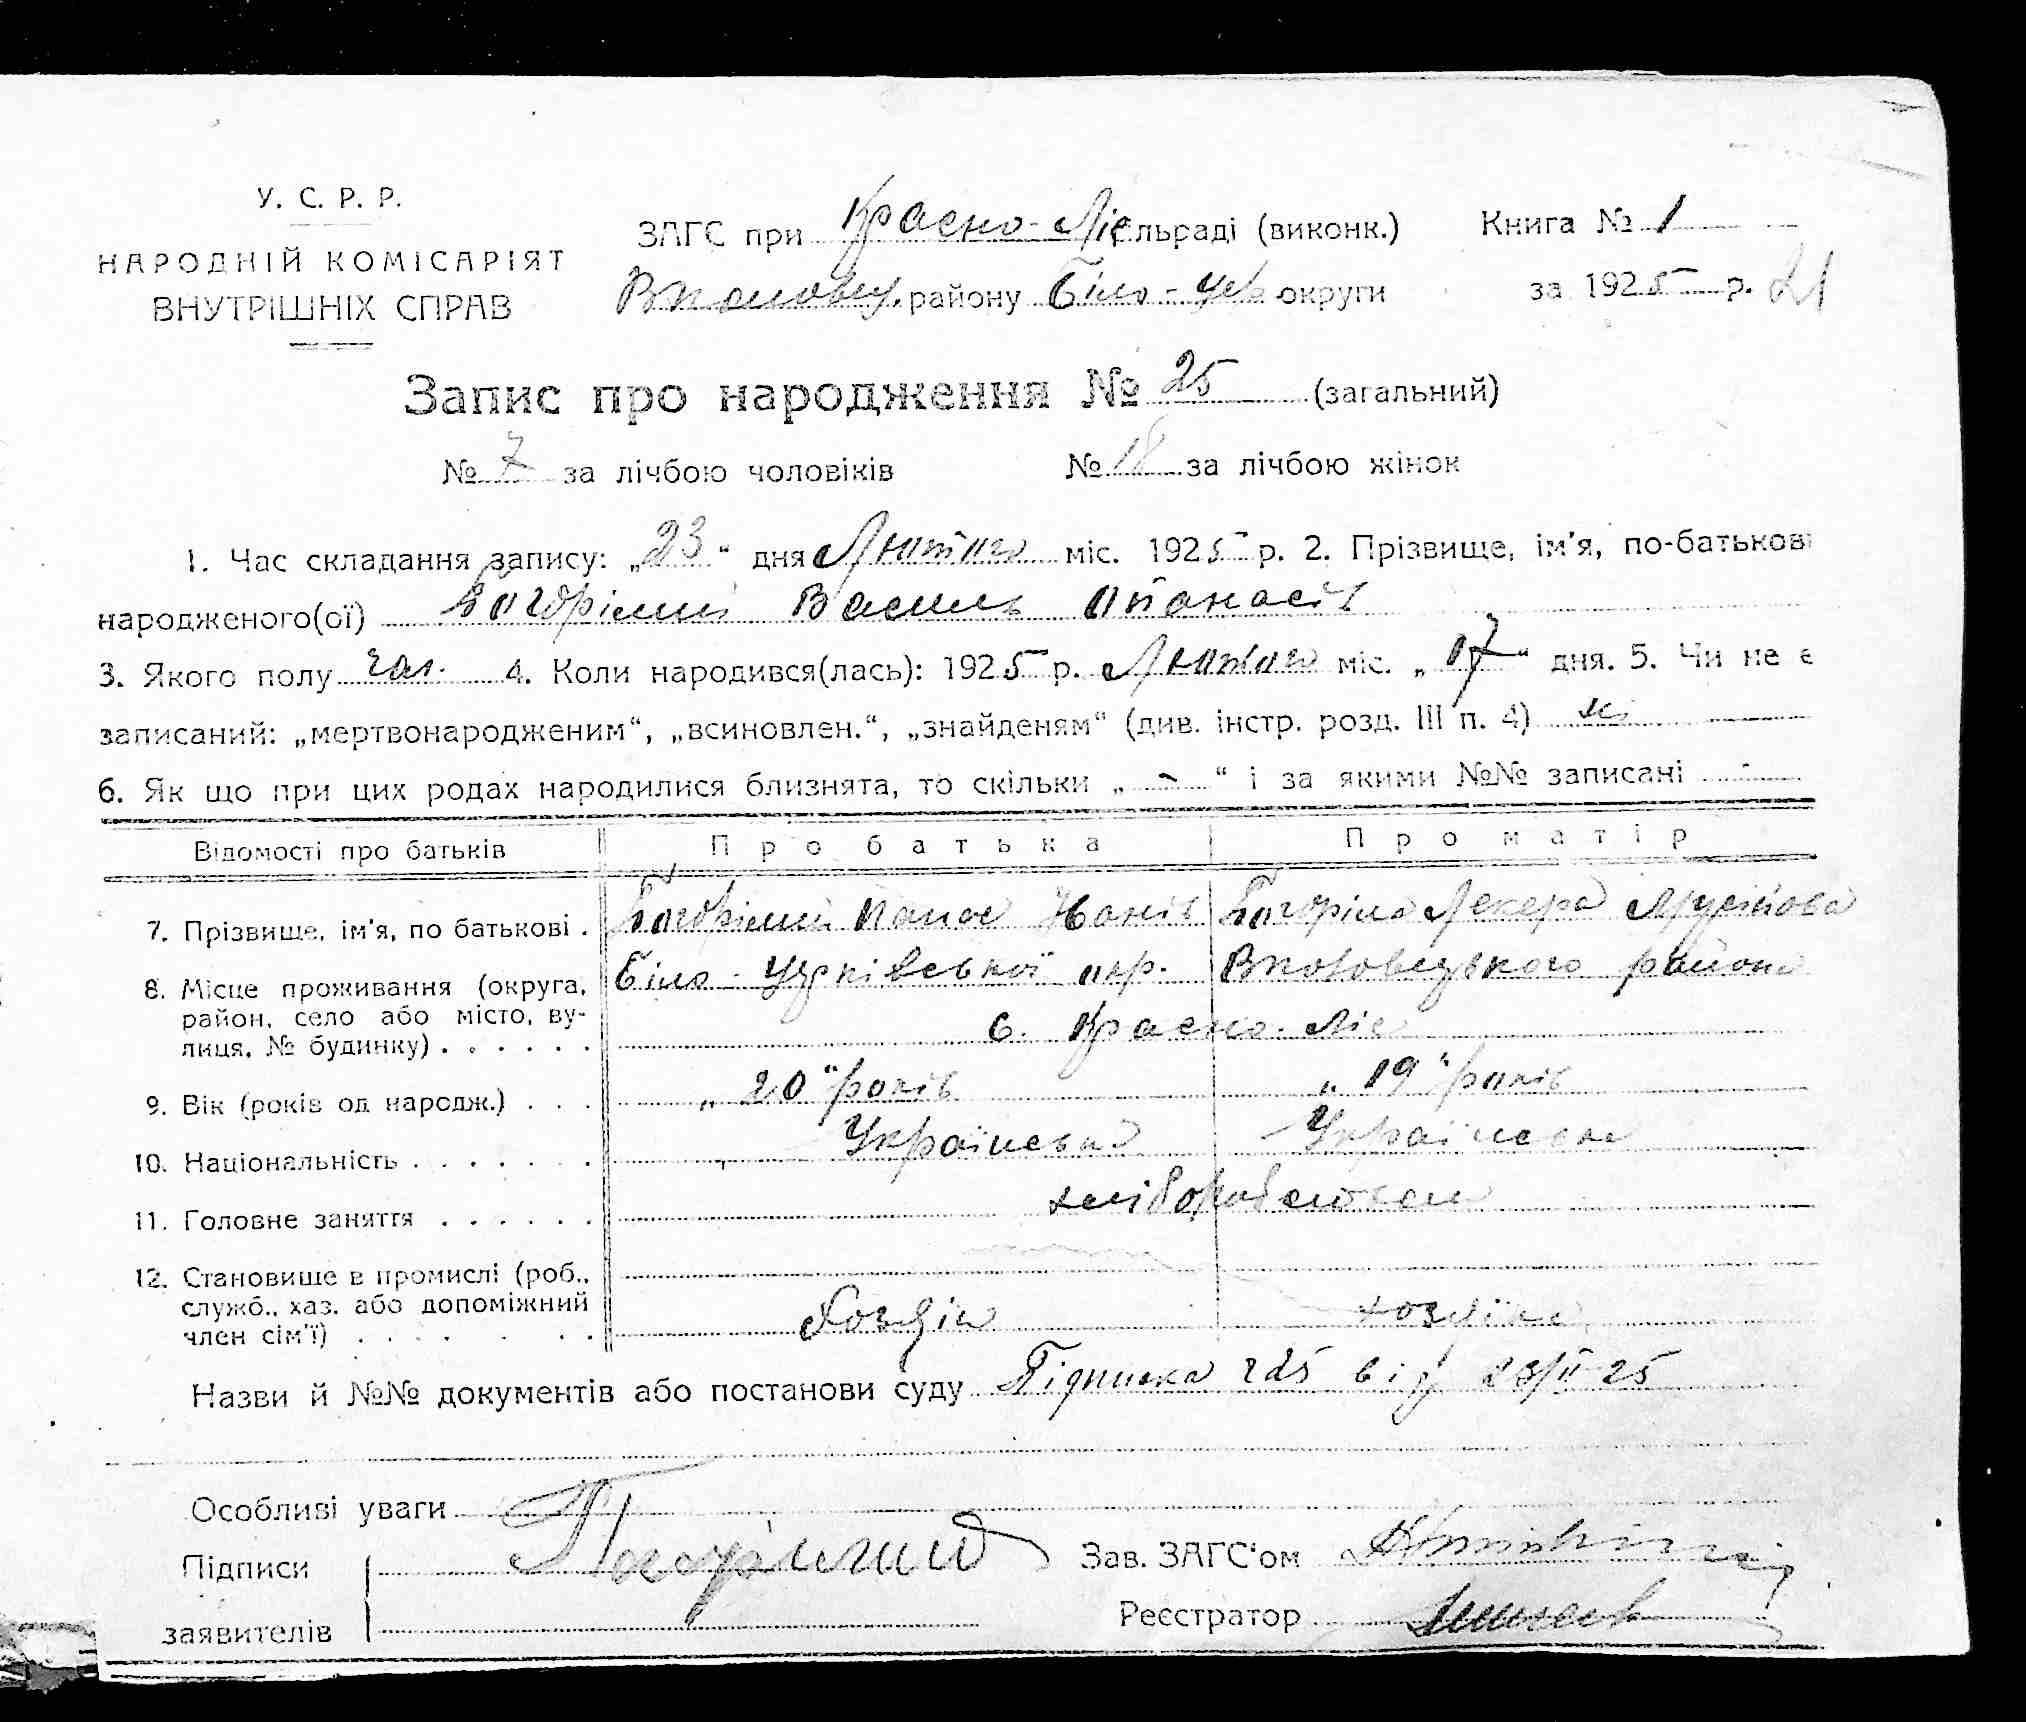 У. С. Р. Р.
НАРОДНІЙ КОМІСАРІЯТ
ВНУТРІШНІХ СПРАВ
ЗАГС при Красно-Лісільраді (виконк.)
району Біло-Церк округи
Книга № 1
за 1925 р. 21
Запис про народження № 25 (загальний)
№ 7 за лічбою чоловіків № 18 за лічбою жінок
1. Час складання запису: „23“ дня Лютого міс. 1925 р. 2. Прізвище, ім'я, по-батькові
народженого(ої) Василь Опанасів
3. Якого полу чол. 4. Коли народився(лась): 1925 р. Лютого міс. „17“ дня. 5. Чи не є
записаний: „мертвонародженим“, „всиновлен.“, „знайденям“ (див. інстр. розд. III п. 4) ні
6. Як що при цих родах народилися близнята, то скільки „ - “ і за якими №№ записані -
Відомості про батьків Про батька Про матір
7. Прізвище, ім'я, по батькові . Панас Іванів
8. Місце проживання (округа, район, село або місто, вулиця, № будинку) . . . . . . Біло-Церківської окр. району
с. Красно-Ліс
9. Вік (років од народж.) . . . „20“ років „19“ років
10. Національність . . . . . . . Українець Українка
11. Головне заняття . . . . . . хліборобство
12. Становище в промислі (роб., служб., хаз. або допоміжний член сім'ї) . . . . . . Хозяїн хозяйка
Назви й №№ документів або постанови суду Підписка від 23/II-25
Особливі уваги
Підписи
заявителів
Зав. ЗАГС'ом
Реєстратор